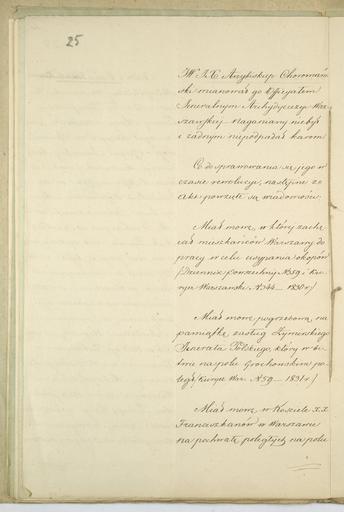 25
JW JX Arcybiskup Choromań
ski mianował go Officyałem
Jeneralnym Archidyecezyi War
szawskiej – Naganiany nie był
i żadnym niepodpadał karom
Co do sprawowania się jego w
czasie rewolucyi, następne ze
są wiadomości
Miał mowę, w któréj zachę
cał mieszkańców Warszawy do
pracy w celu usypania okopów
/Dziennik Powszechny N 359 i Kur
yer Warszawski N 344 – 1830 r/
Miał mowę pogrzebową, na
pamiątkę zasług Żymirskiego
Jenerała Polskiego, który w bi
twie na polu Grochowskim po
legł /Kuryer War. N 59 – 1831 r/
Miał mowę w Kościele X.X.
Franciszkanów w Warszawie
na pochwałę poległych na polu